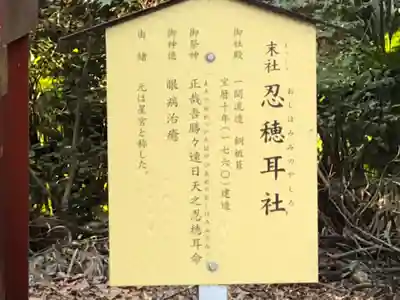 末社 忍穂耳社
まっしゃ おしほみみのやしろ
御社殿 一間流造 銅板葺
宝暦十年(一七六〇)建造
御祭神 正哉吾勝々速日天之忍穂耳命
御神徳 眼病治癒
由緒 元は星宮と称した。